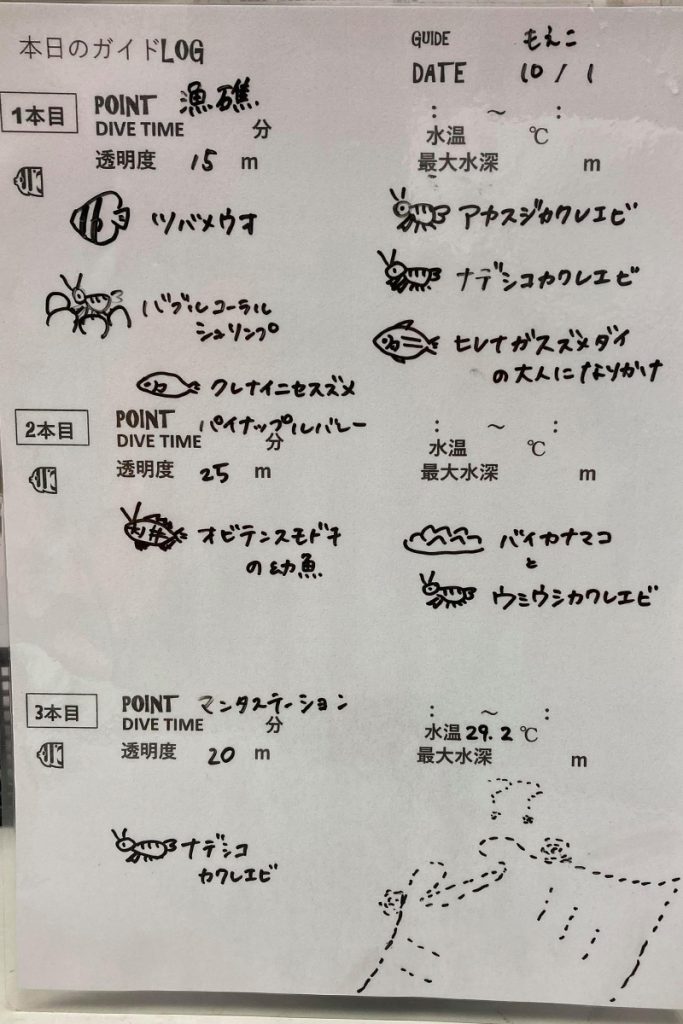 本日のガイドLOG
GUIDE もえこ
DATE 10 / 1
1本目
POINT 漁礁
DIVE TIME 分
透明度 15 m
: ～ :
水温 ℃
最大水深 m
ツバメウオ
バブルコーラル
シュリンプ
クレナイニセスズメ
アカスジカクレエビ
ナデシコカクレエビ
ヒレナガスズメダイ
の大人になりかけ
2本目
POINT パイナップルバレー
DIVE TIME 分
透明度 25 m
: ～ :
水温 ℃
最大水深 m
オビテンスモドキ
の幼魚
バイカナマコ
と
ウミウシカクレエビ
3本目
POINT マンタステーション
DIVE TIME 分
透明度 20 m
: ～ :
水温 29.2 ℃
最大水深 m
ナデシコ
カクレエビ
??